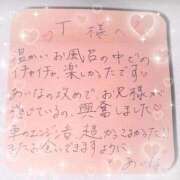 T 様へ
温かいお風呂の中での
イチャイチャ、楽しかったです
あいなの攻めでお兄様が
感じているの、興奮しました
車のエンジン音、超かっこよかった
またお会いできますように
あいな